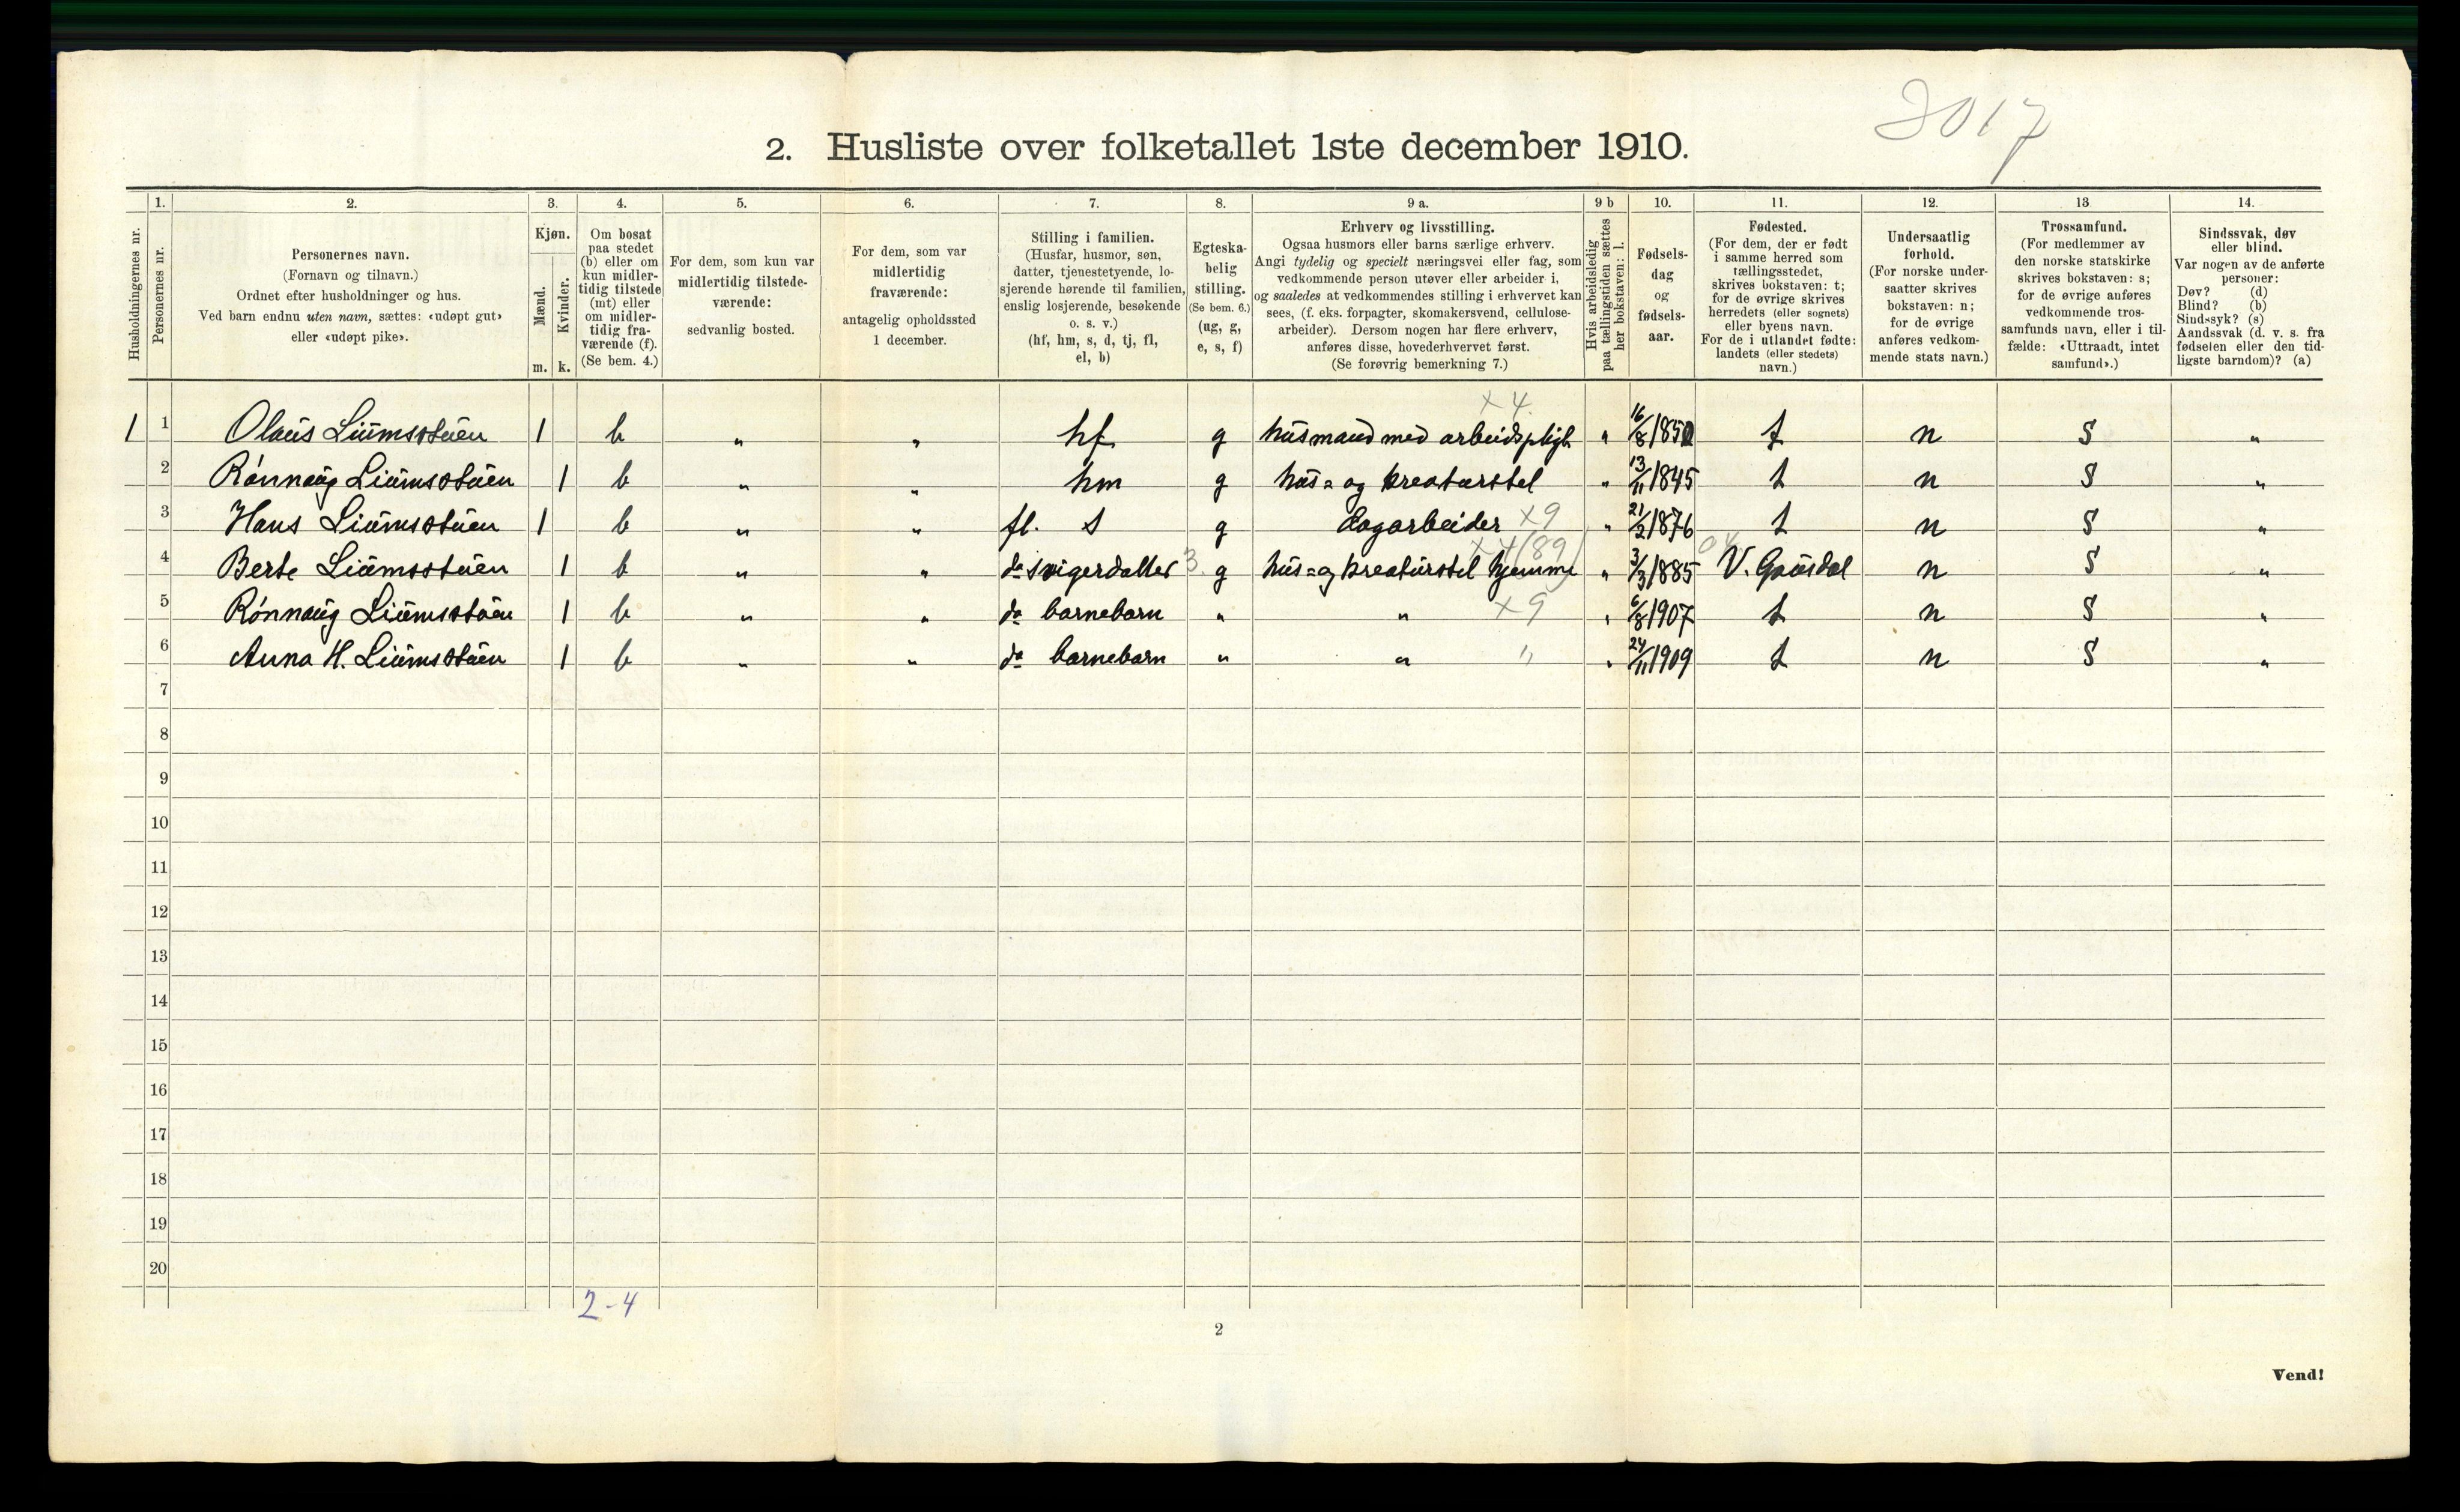 2017
2. Husliste over folketallet 1ste december 1910.
Husholdningernes nr.
1. Personernes nr.
2. Personernes navn. (Fornavn og tilnavn.) Ordnet efter husholdninger og hus. Ved barn endnu uten navn, sættes: «udøpt gut» eller «udøpt pike».
3. Kjøn. Mænd. m. Kvinder. k.
4. Om bosat paa stedet (b) eller om kun midlertidig tilstede (mt) eller om midlertidig fraværende (f). (Se bem. 4.)
5. For dem, som kun var midlertidig tilstedeværende: sedvanlig bosted.
6. For dem, som var midlertidig fraværende: antagelig opholdssted 1 december.
7. Stilling i familien. (Husfar, husmor, søn, datter, tjenestetyende, losjerende hørende til familien, enslig losjerende, besøkende o. s. v.) (hf, hm, s, d, tj, fl, el, b)
8. Egteskabelig stilling. (Se bem. 6.) (ug, g, e, s, f)
9 a. Erhverv og livsstilling. Ogsaa husmors eller barns særlige erhverv. Angi tydelig og specielt næringsvei eller fag, som vedkommende person utøver eller arbeider i, og saaledes at vedkommendes stilling i erhvervet kan sees, (f. eks. forpagter, skomakersvend, cellulosearbeider). Dersom nogen har flere erhverv, anføres disse, hovederhvervet først. (Se forøvrig bemerkning 7.)
9 b Hvis arbeidsledig paa tællingstiden sættes her bokstaven: l.
10. Fødselsdag og fødselsaar.
11. Fødested. (For dem, der er født i samme herred som tællingsstedet, skrives bokstaven: t; for de øvrige skrives herredets (eller sognets) eller byens navn. For de i utlandet fødte: landets (eller stedets) navn.)
12. Undersaatlig forhold. (For norske undersaatter skrives bokstaven: n; for de øvrige anføres vedkommende stats navn.)
13 Trossamfund. (For medlemmer av den norske statskirke skrives bokstaven: s; for de øvrige anføres vedkommende trossamfunds navn, eller i tilfælde: «Uttraadt, intet samfund».)
14. Sindssvak, døv eller blind. Var nogen av de anførte personer: Døv? (d) Blind? (b) Sindssyk? (s) Aandssvak (d. v. s. fra fødselen eller den tidligste barndom)? (a)
x 4
1 1 Olaus Liumsstuen 1 b " " hf g husmand med arbeidspligt " 16/8 1850 t n S "
2 Rønnaug Liumsstuen 1 b " " hm g hus= og kreaturstel " 13/11 1845 t n S "
3 Hans Liumsstuen 1 b " " fl. s g dagarbeider x9 " 21/2 1876 t n S "
x4(89) 04
4 Berte Liumsstuen 1 b " " do svigerdatter 3 g hus= og kreaturstel hjemme " 3/3 1885 V. Gausdal n S "
5 Rønnaug Liumsstuen 1 b " " do barnebarn " " x9 " 6/8 1907 t n S "
6 Anna H. Liumsstuen 1 b " " do barnebarn " " " " 24/11 1909 t n S "
7
8
9
10
11
12
13
14
15
16
17
18
19
20
2-4
2
Vend!